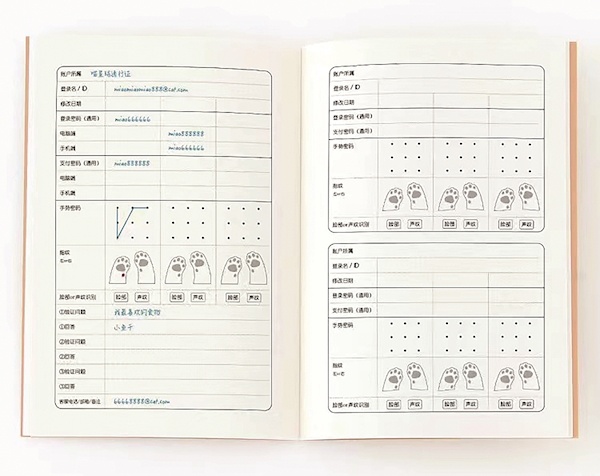 账户所属 喵星球通行证
登录名 / ID miaomiaomiao888@cat.com
修改日期
登录密码（通用） miao666666
电脑端 miao888888
手机端 miao666666
支付密码（通用） miao888888
电脑端
手机端
手势密码
指纹
左—右
脸部or声纹识别 脸部 声纹 脸部 声纹 脸部 声纹
①验证问题 我最喜欢的食物
①回答 小鱼干
②验证问题
②回答
③验证问题
③回答
客服电话/邮箱/备注 66668888@cat.com
账户所属
登录名 / ID
修改日期
登录密码（通用）
支付密码（通用）
手势密码
指纹
左—右
脸部or声纹识别 脸部 声纹 脸部 声纹 脸部 声纹
账户所属
登录名 / ID
修改日期
登录密码（通用）
支付密码（通用）
手势密码
指纹
左—右
脸部or声纹识别 脸部 声纹 脸部 声纹 脸部 声纹